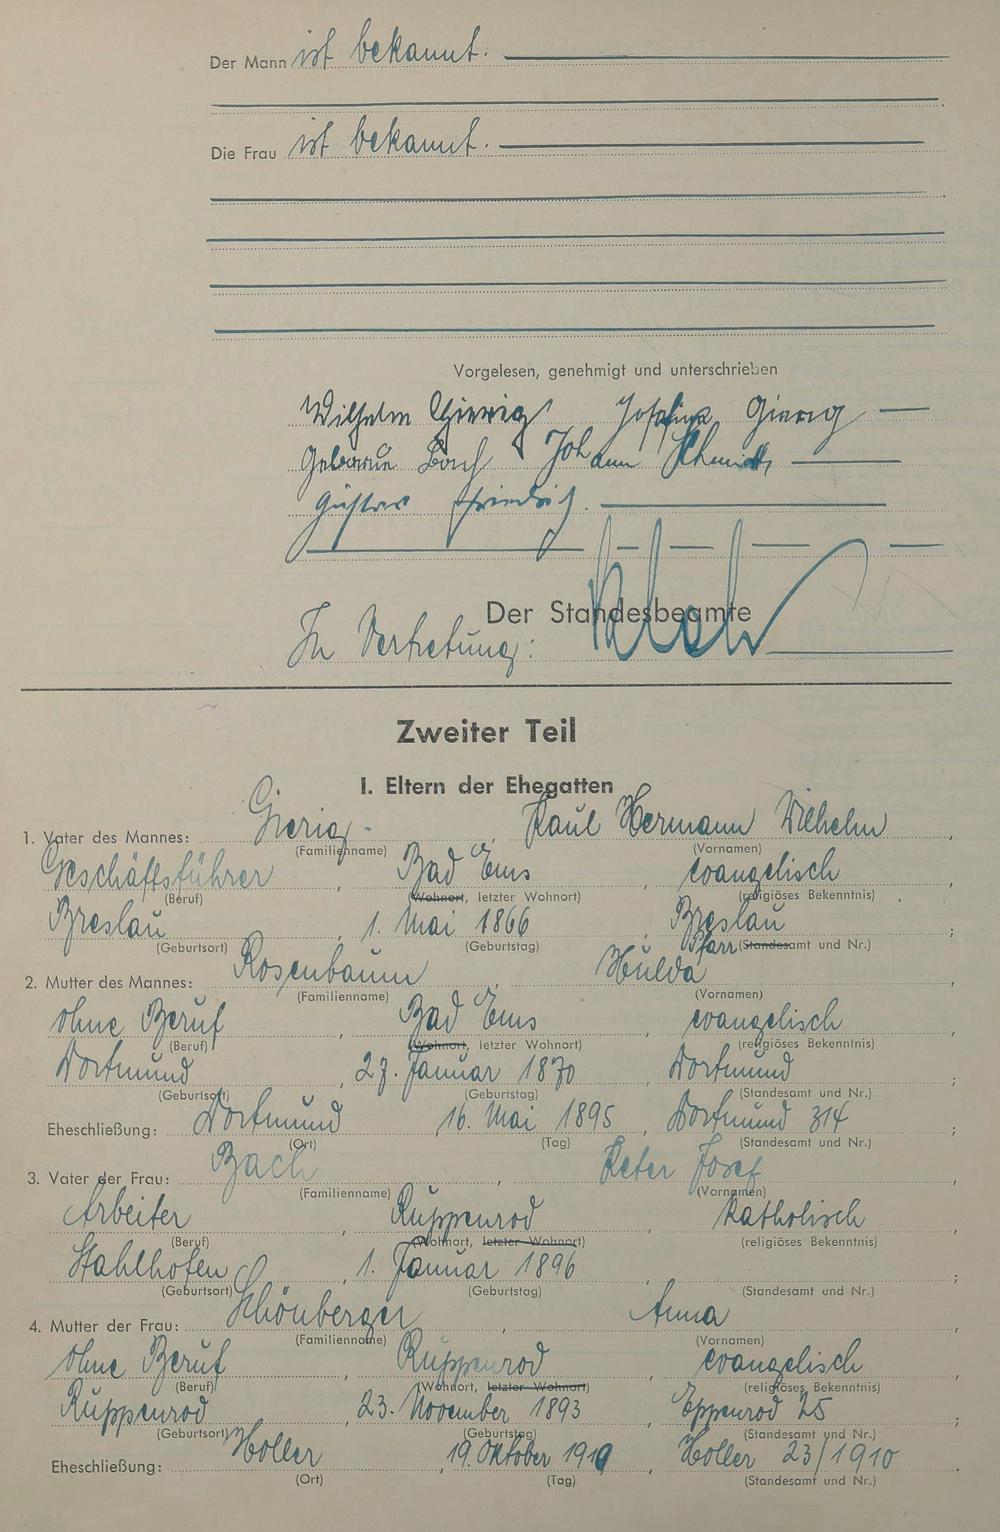 Der Mann ist bekannt.
Die Frau ist bekannt.
Vorgelesen, genehmigt und unterschrieben
Wilhelm Gierig Josefine Gierig
geborene Bach Johann Schmidt
Gustav Friedrich.
Der Standesbeamte
In Vertretung:
Zweiter Teil
I. Eltern der Ehegatten
1. Vater des Mannes: Gierig, Paul Hermann Wilhelm,
(Familienname) (Vornamen)
Geschäftsführer, Bad Ems, evangelisch
(Beruf) (Wohnort, letzter Wohnort) (religiöses Bekenntnis)
Breslau, 1. Mai 1866 Breslau;
(Geburtsort) (Geburtstag) Pfarr (Standesamt und Nr.)
2. Mutter des Mannes: Rosenbaum, Hulda,
(Familienname) (Vornamen)
ohne Beruf, Bad Ems, evangelisch
(Beruf) (Wohnort, letzter Wohnort) (religiöses Bekenntnis)
Dortmund, 27. Januar 1870, Dortmund;
(Geburtsort) (Geburtstag) (Standesamt und Nr.)
Eheschließung: Dortmund, 16. Mai 1895, Dortmund 314;
(Ort) (Tag) (Standesamt und Nr.)
3. Vater der Frau: Bach, Peter Josef,
(Familienname) (Vornamen)
Arbeiter, Ruppenrod, katholisch
(Beruf) (Wohnort, letzter Wohnort) (religiöses Bekenntnis)
Stahlhofen, 1. Januar 1896,;
(Geburtsort) (Geburtstag) (Standesamt und Nr.)
4. Mutter der Frau: Schönberger, Anna,
(Familienname) (Vornamen)
ohne Beruf, Ruppenrod, evangelisch
(Beruf) (Wohnort, letzter Wohnort) (religiöses Bekenntnis)
Ruppenrod, 23. November 1893, Eppenrod 25;
(Geburtsort) (Geburtstag) (Standesamt und Nr.)
Eheschließung: Holler, 19. Oktober 1919, Holler 23/1910.
(Ort) (Tag) (Standesamt und Nr.)